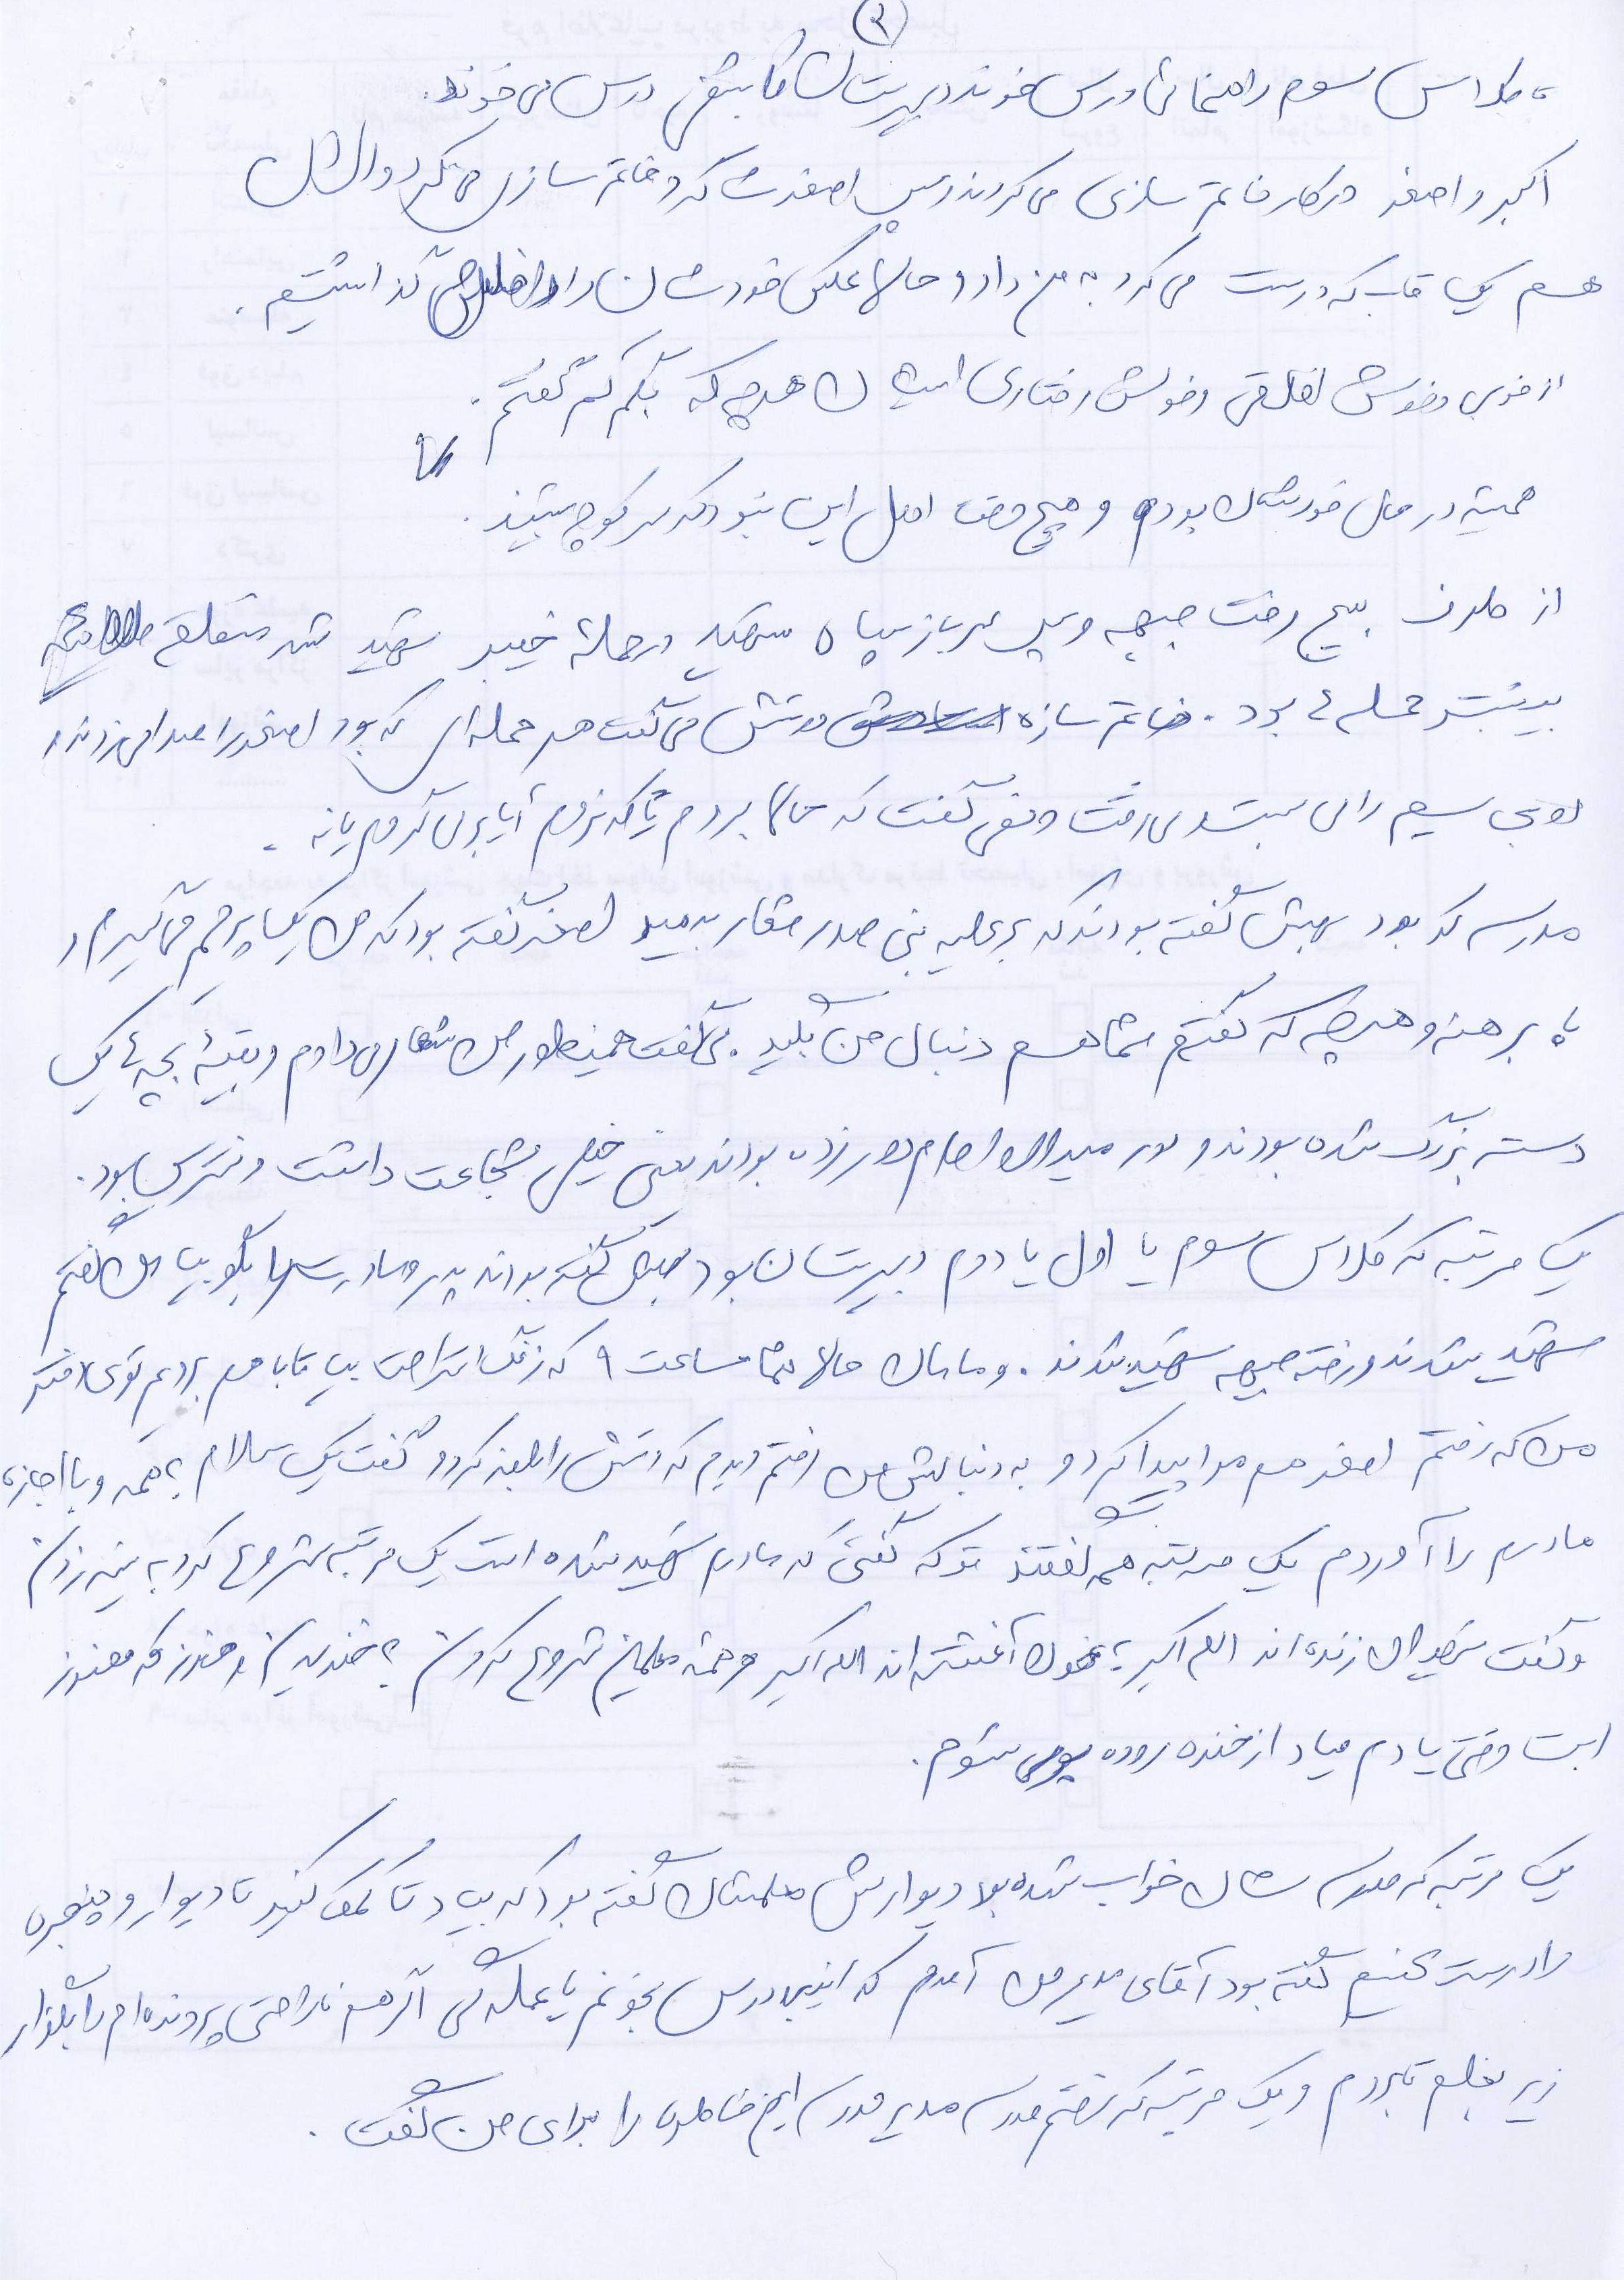 ۳
تا کلاس سوم راهنمائی درس خوند و دبیرستان شبانه درس می خوند.
اکبر و اصغر در کار خاتم سازی می کردند و پس اصغر شاگرد خاتم سازی می کرد و الان
هم یک قاب که درست می کرد به من داد و حالا عکس خودشان را داخلش گذاشتیم.
از خوبی و خوش اخلاقی و خوش رفتاری ایشان هرچه که بگم کم گفتم.
همیشه در حال خودشان بودم و هیچ وقت اهل این نبود که سر کوچه بشیند.
از طرف بسیج رفت جبهه و پس سرباز سپاه شد و در حملهٔ خیبر شهید شد
بی سیم چی بود. خاتم سازه دوستش می گفت هر حمله ای که بود اصغر را صدا می زدند و
بی سیم را می بست و می رفت و نمی گفت که حالا بروم یا که نروم آیا برمی گردم یا نه.
مدرسه که بود بهش گفته بودند که بر علیه بنی صدر شعار بدهید اصغر گفته بود که من یک پرچم می گیرم و
پا برهنه و هرچه که گفتم شما هم دنبال من بگید. می گفت همینطور من شعار می دادم و بقیهٔ بچه ها یک
دسته بزرگ شده بودند و دور میدان امام دور زده بودند یعنی خیلی شجاعت داشت و نترس بود.
یک مرتبه که کلاس سوم یا اول یا دوم دبیرستان بود بهش گفته بودند پدر و مادرت را بگو بیاد من گفتم
شهید شدند و رفته جبهه شهید شدند. و مامان حالا شما ساعت ۹ که زنگ استراحت بیا تا با هم برویم توی دفتر
من که رفتم اصغر هم مرا پیدا کرد و به دنبالش من رفتم دیدم که دستش را بلند کرد و گفت یک سلام به همه و با اجازه
مادرم را آوردم یک مرتبه همه گفتند تو که گفتی که مادرم شهید شده است یک مرتبه شروع کرد به سینه زدن
و گفت شهیدان زنده اند الله اکبر به خون آغشته اند الله اکبر و همه معلمین شروع کردن به خندیدن و هنوز که هنوز
است وقتی یادم میاد از خنده روده بر می شوم.
یک مرتبه که مدرسه شان خراب شده بود دیوارش معلمشان گفته بود که بیاد تا کمک کنید تا دیوار و پنجره
را درست کنیم گفته بود آقای مدیر من آمدم که اینجا درس بخونم یا عملگی اگر هم ناراحتی پرونده ام را بگذار
زیر بغلم تا بروم و یک مرتبه که رفتم مدرسه مدیر مدرسه این خاطره را برای من گفت.